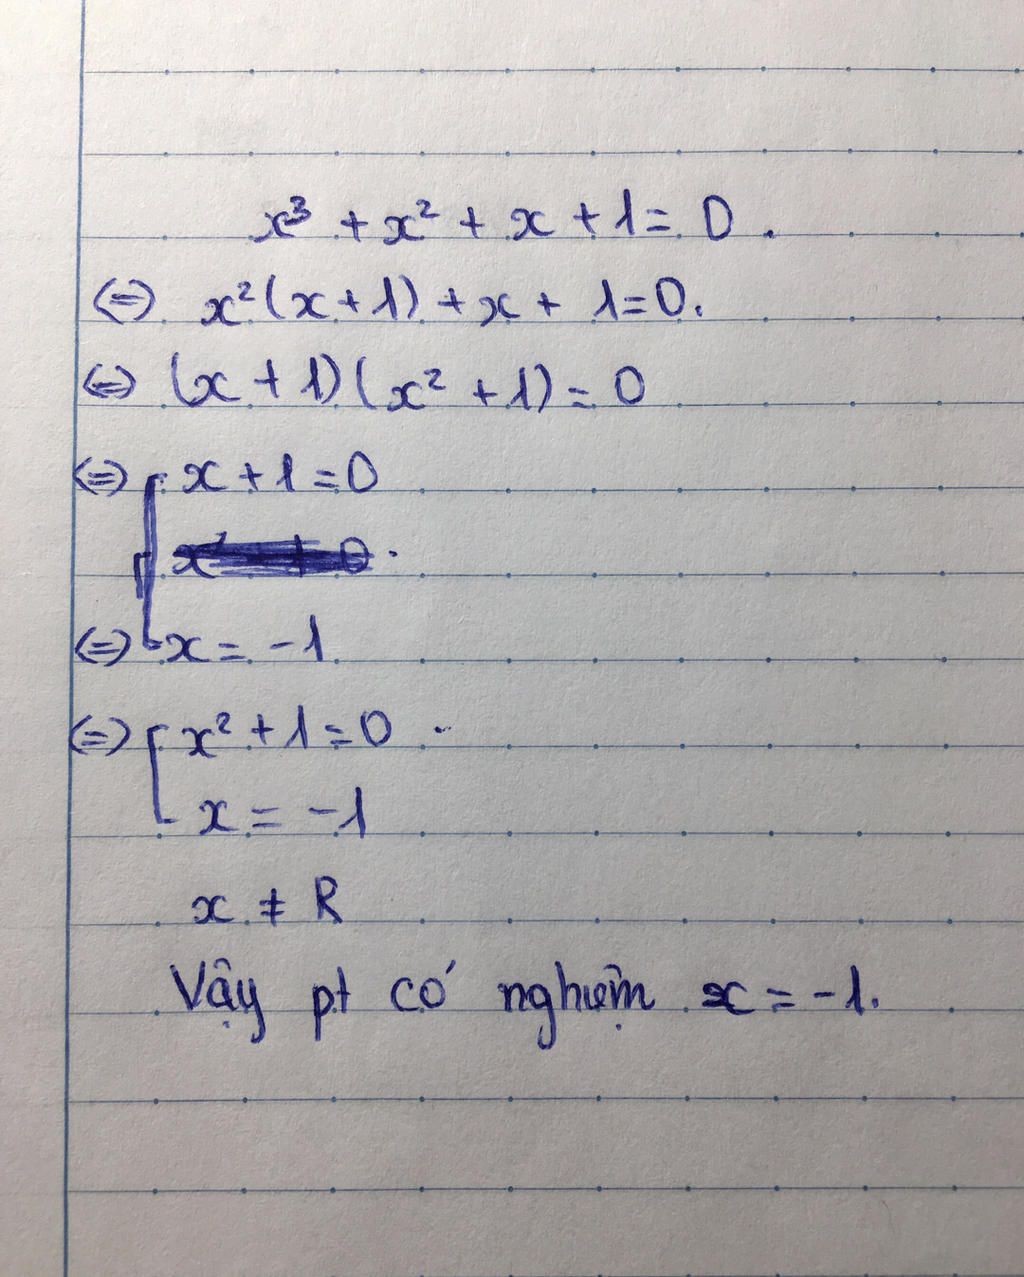 x³ + x² + x + 1 = 0.
(=) x²(x+1) + x + 1 = 0.
(=) (x + 1)(x² + 1) = 0
(=) [ x + 1 = 0
(=) x = -1
(=) [ x² + 1 = 0
x = -1
x ≠ R
Vậy pt có nghiệm x = -1.